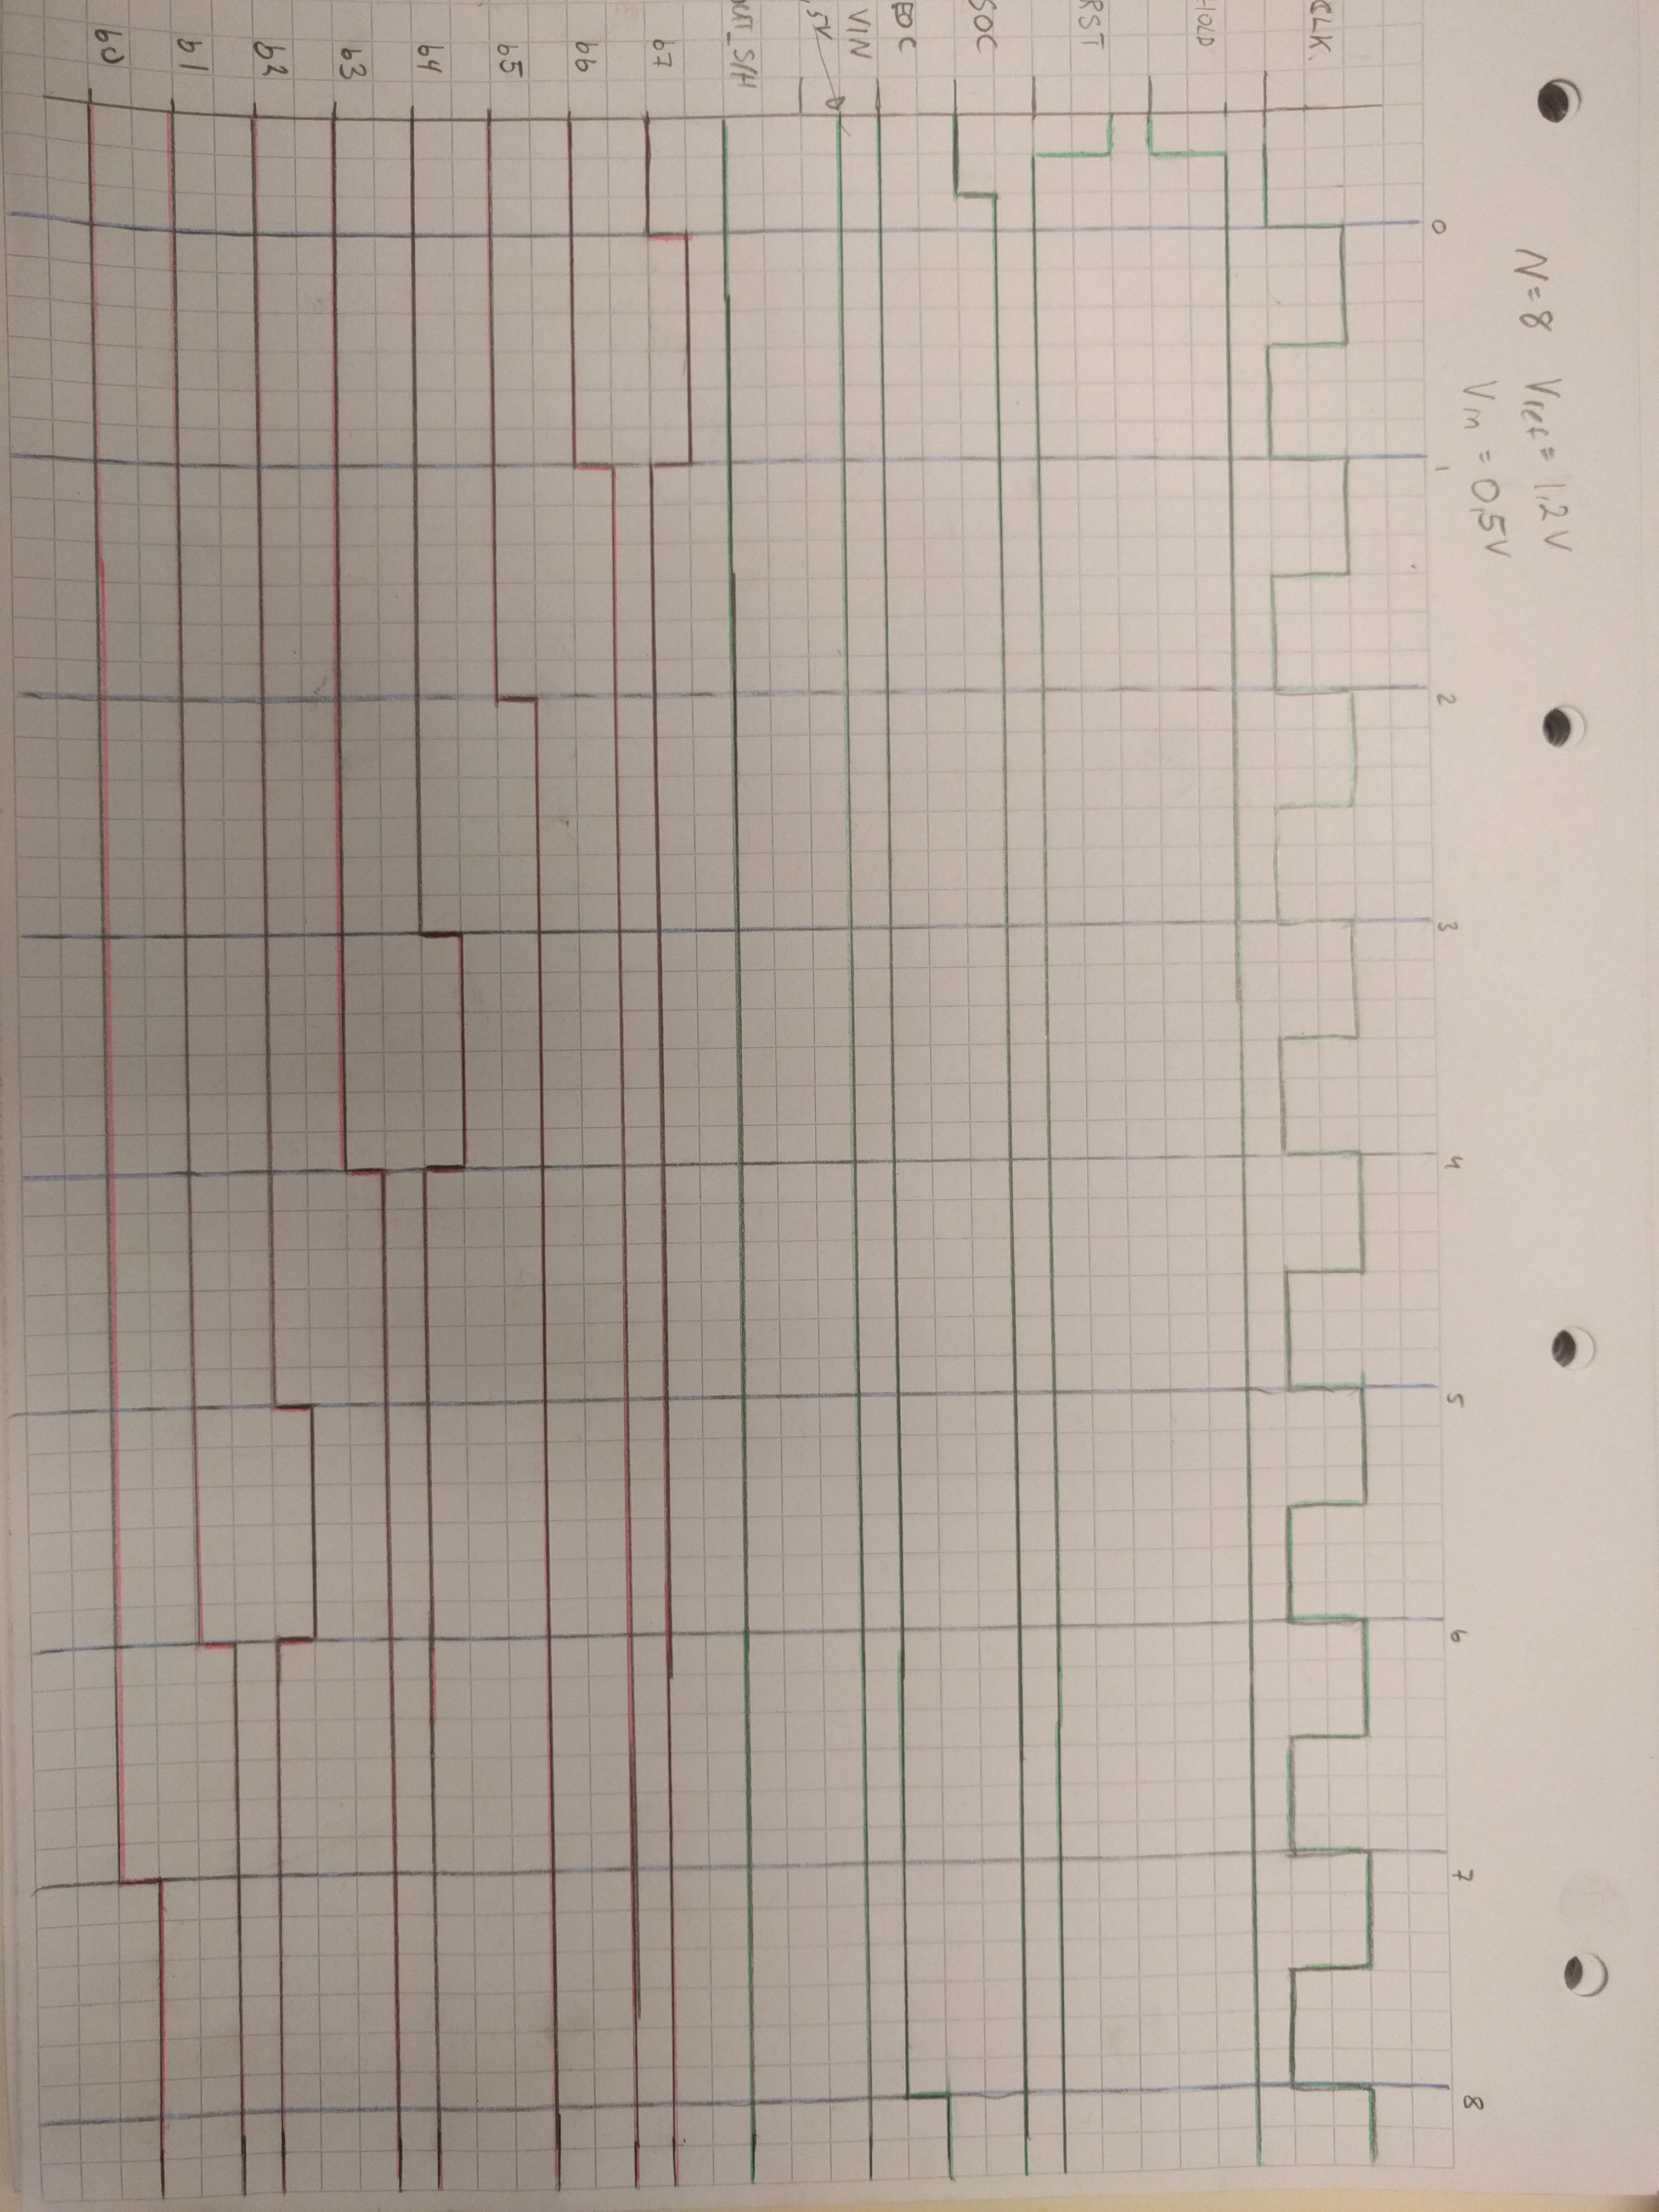 N=8 Vref= 1,2V
Vin = 0,5V
0 1 2 3 4 5 6 7 8
CLK.
HOLD
RST
SOC
EOC
VIN
,5V
OUT_S/H
b7
b6
b5
b4
b3
b2
b1
b0